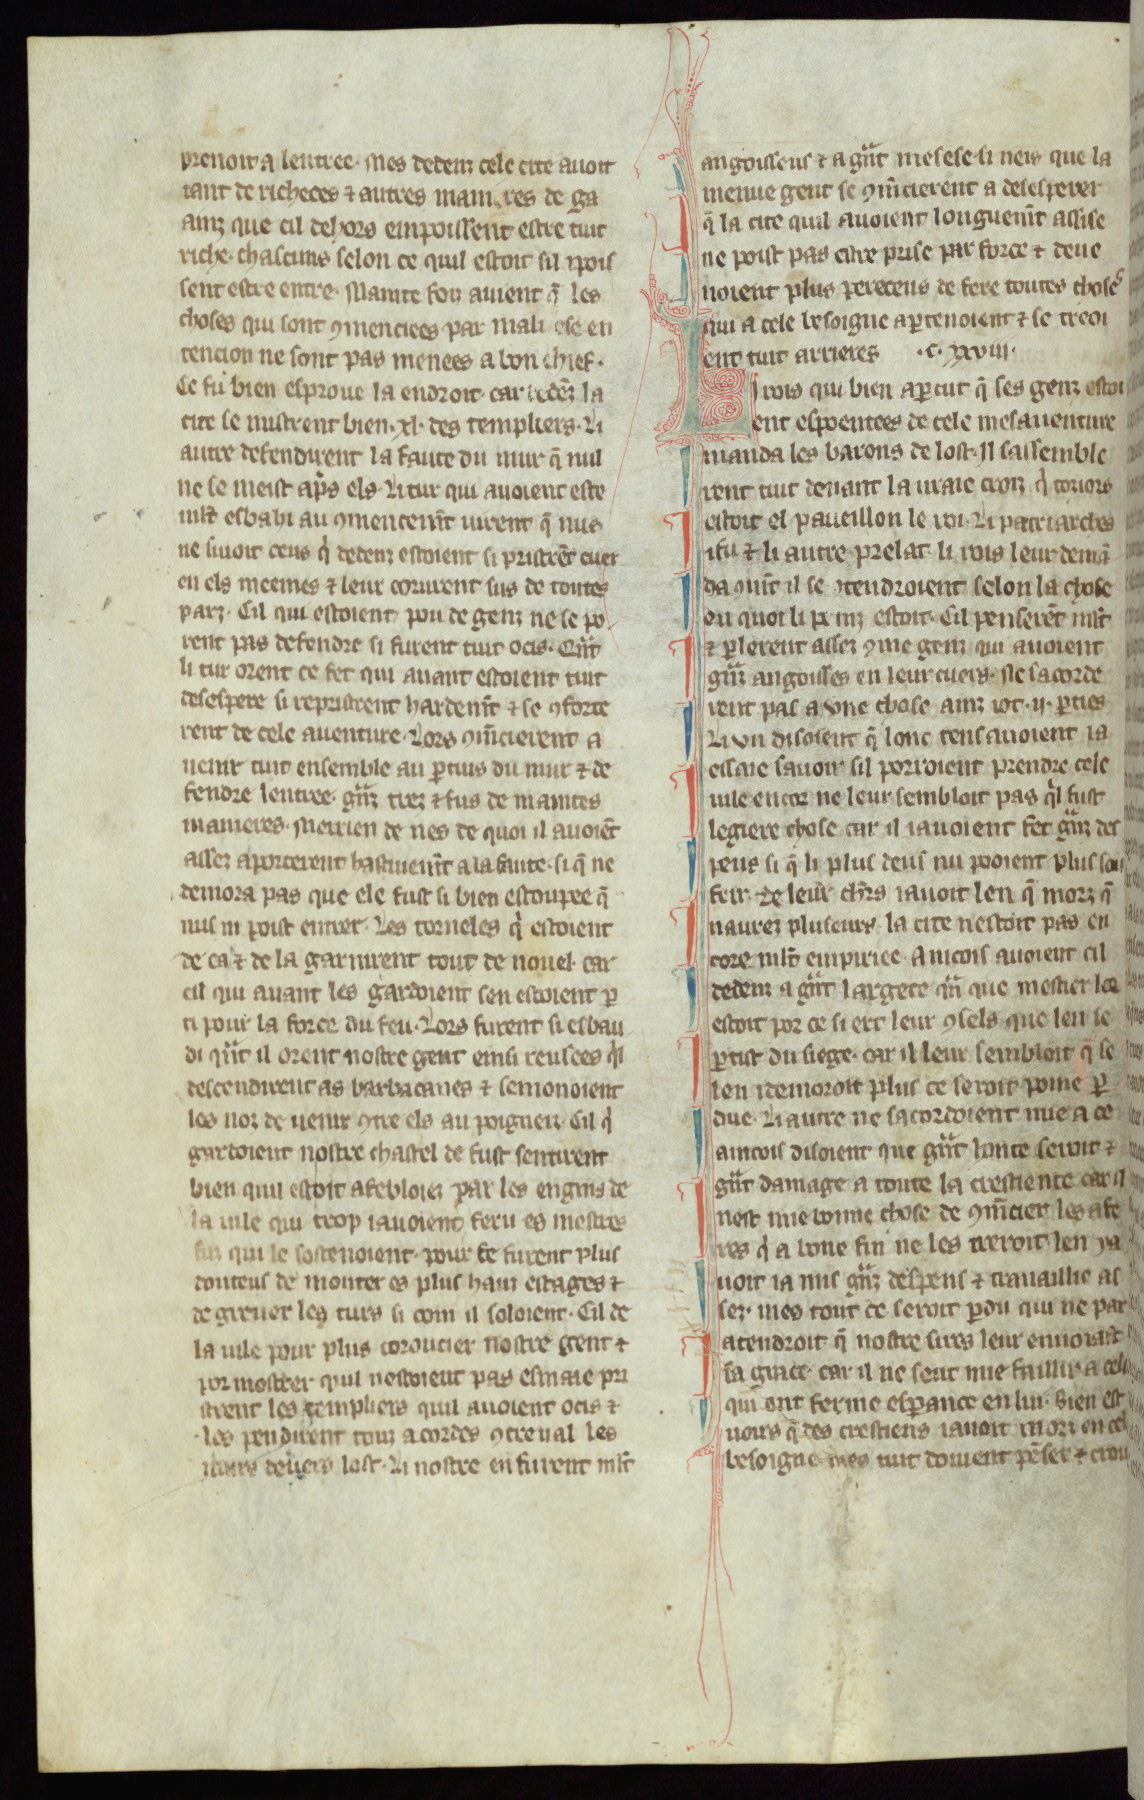 prenoit a lentree. Mes dedenz cele cite avoit
tant de richeces ⁊ autres manieres de ga
ainz que cil dehors empoissent estre tuit
riche. chascuns selon ce quil estoit sil ipois
sent estre entre. Mainte foiz avient q̄ les
choses qui sont ꝯmenciees par mali ese en
tencion ne sont pas menees a bon chief.
Ce fu bien esprove la endroit. car dedēz la
cite se mistrent bien .xl. des templiers. Li
autre defendirent la faute du mur q̄ nul
ne se meist ap̄s els. Li tur qui avoient este
ml̄t esbahi au ꝯmencemt̄ virent q̄ nus
ne sivoit ceus q̓ dedenz estoient si pristrēt cuer
en els meemes ⁊ leur corurent sus de toutes
parz. Cil qui estoient pou de genz ne se po
rent pas defendre si furent tuit ocis. Q̄nt
li tur orent ce fet qui avant estoient tuit
desespere si repristrent hardemt̄ ⁊ se ꝯforte
rent de cele aventure. Lors ꝯm̄cierent a
venir tuit ensemble au ꝑtuis du mur ⁊ de
fendre lentree. gr̄nz trez ⁊ fus de maintes
manieres. Merrien de nes de quoi il avoiēt
assez aporterent hastivemt̄ a la faute. si q̄ ne
demora pas que ele fust si bien estoupee q̄
nus ni poist entrer. Les torneles q̓ estoient
de ca ⁊ de la garnirent tout de novel. car
cil qui avant les gardoient sen estoient ꝑ
ti pour la force du feu. Lors furent si esbau
di q̄nt il orent nostre gent einsi reusees q̓l
descendirent as barbacanes ⁊ semonoient
les noz de venir ꝯtre els au poigneiz. Cil q̓
gardoient nostre chastel de fust sentirent
bien quil estoit afebloiez par les engins de
la vile qui trop iavoient feru es mestres
fuz qui le sostenoient. pour ce furent plus
douteus de monter es plus hauz estages ⁊
de grever les turs si com il soloient. Cil de
la vile pour plus coroucier nostre gent ⁊
por mostrer quil nestoient pas esmaie pri
strent les templiers quil avoient ocis ⁊
les pendirent touz a cordes ꝯtreval les
murs devers lost. Li nostre en furent ml̄t
angoisseus ⁊ a gr̄nt mesese. si neis que la
menue gent se ꝯm̄cierent a desesperer
q̄ la cite quil avoient longuemt̄ assise
ne poist pas estre prise par force ⁊ deve
noient plus pereceus de fere toutes choses
qui a cele besoigne apartenoient ⁊ se treoi
ent tuit arrieres .C. XXVIII.
Li rois qui bien aꝑcut q̄ ses genz estoi
ent espoentees de cele mesaventure
manda les barons de lost. Il sassemble
rent tuit devant la vraie croiz q̓ toriors
estoit el paveillon le roi. Li patriarches
ifu ⁊ li autre prelat. li rois leur demā
da ꝯmt̄ il se ꝯtendroient selon la chose
ou quoi li poinz estoit. Cil penserēt ml̄t
⁊ ꝑlerent assez ꝯme genz qui avoient
gr̄nz angoisses en leur cuers. Ne sacorde
rent pas a une chose ainz iot .ii. ꝑties
Li un disoient q̄ lonc tens avoient ia
essaie savoir sil porroient prendre cele
vile encor ne leur sembloit pas q̓l fust
legiere chose car il iavoient fet gr̄nz des
pens si q̄ li plus deus nu pooient plus sou
frir. De leur ch̄rs iavoit len q̄ morz q̄
navrez pluseurs. la cite nestoit pas en
core ml̄t empiriee. Ancois avoient cil
dedenz a gr̄nt largete q̄n que mestier lor
estoit por ce si ert leur ꝯsels que len se
ꝑtist du siege. car il leur sembloit q̄ se
len idemoroit plus ce seroit poine ꝑ
due. Li autre ne sacordoient mie a ce
aincois disoient que gr̄nt honte seroit ⁊
gr̄nt damage a toute la crestiente car il
nest mie bonne chose de ꝯm̄cier les afe
res q̓ a bone fin ne les treroit. len ia
voit ia mis gr̄nz despens ⁊ travaillie as
sez. mes tout de seroit ꝑdu qui ne par
atendroit q̄ nostre sires leur envoiast
sa grace. car il ne seut mie faillir a cels
qui ont ferme esꝑance en lui. Bien est
voirs q̄ des crestiens iavoit morz en cel
besoigne mes tuit doivent pēser ⁊ croi